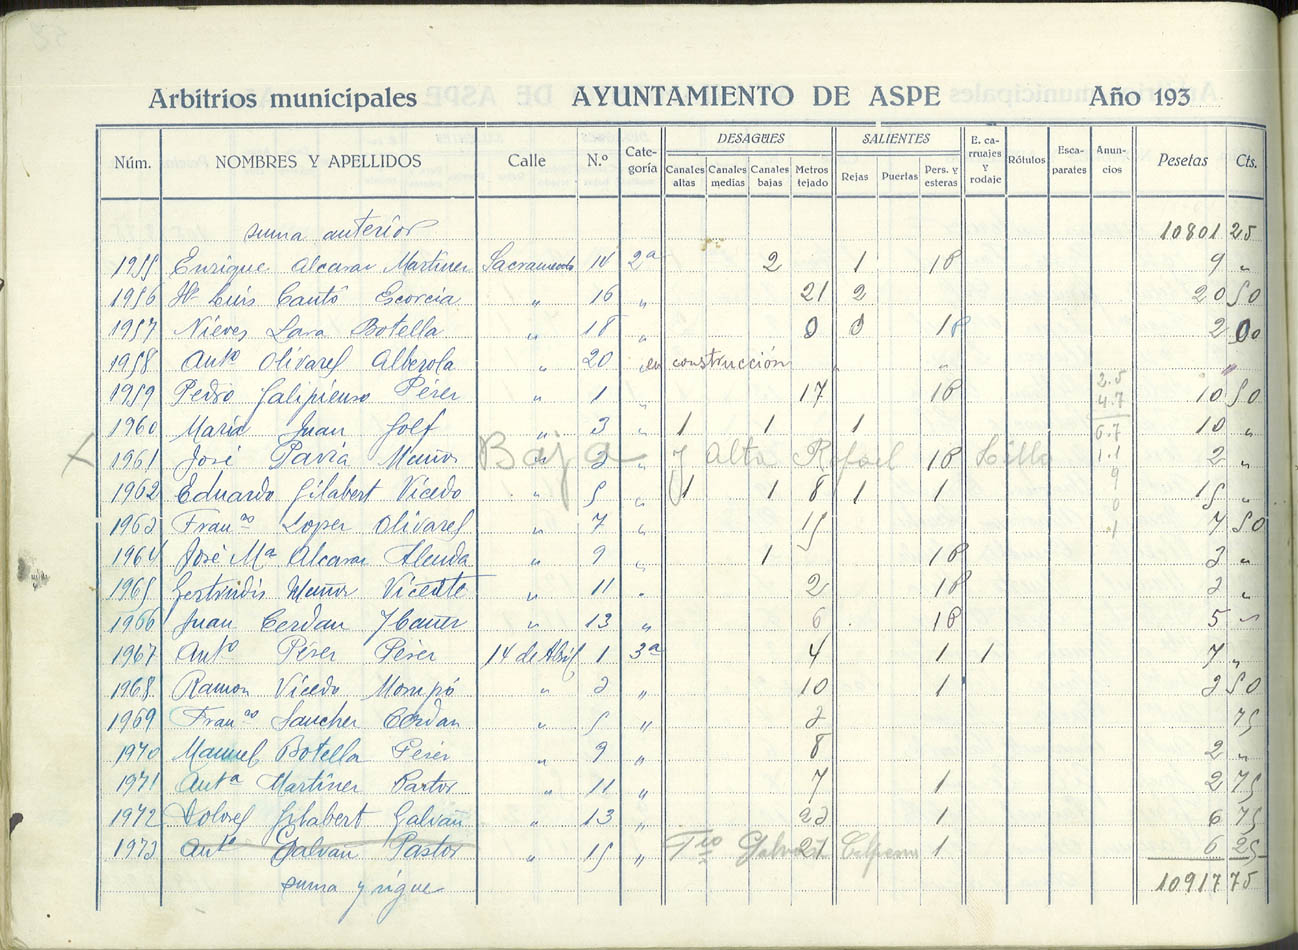 Arbitrios municipales AYUNTAMIENTO DE ASPE Año 193
Núm. NOMBRES Y APELLIDOS Calle N.º Cate-goría DESAGÜES Canales altas Canales medias Canales bajas Metros tejado SALIENTES Rejas Puertas Pers. y esteras E. ca-rruajes y rodaje Rótulos Esca-parates Anun-cios Pesetas Cts.
suma anterior 10801 25
1955 Enrique Alcaraz Martinez Sacramento 14 2ª 2 1 1P 9 "
1956 Hº Luis Cantó Escorcia " 16 " 21 2 20 50
1957 Nieves Lara Botella " 18 " 0 0 1P 2 00
1958 Antº Olivares Alberola " 20 " en construcción " "
1959 Pedro Galipienso Pérez " 1 " 17 1P 10 50
1960 Maria Juan Golf " 3 " 1 1 1 10 "
1961 José Pavía Muñoz " 3 " 1P 2 "
X Baja y Alta Rafael Cillo
2.5
4.7
6.7
1.1
9
0
.1
1962 Eduardo Gilabert Vicedo " 5 " 1 1 8 1 1 15 "
1963 Franco Lopez Olivares " 7 " 15 7 50
1964 José Mª Alcaraz Alenda " 9 " 1 1P 3 "
1965 Gertrudis Muñoz Vicente " 11 " 2 1P 2 "
1966 Juan Cerdan Ybañez " 13 " 6 1P 5 "
1967 Antº Pérez Pérez 14 de Abril 1 3ª 4 1 1 7 "
1968 Ramon Vicedo Mompó " 3 " 10 1 3 50
1969 Franco Sanchez Cerdan " 5 " 3 75
1970 Manuel Botella Pérez " 9 " 8 2 "
1971 Antª Martinez Pastor " 11 " 7 1 2 75
1972 Dolores Gilabert Galvañ " 13 " 23 1 6 75
1973 Antº Galvañ Pastor " 15 " 21 1 6 25
Fco Galvañ
suma y sigue 10917 75